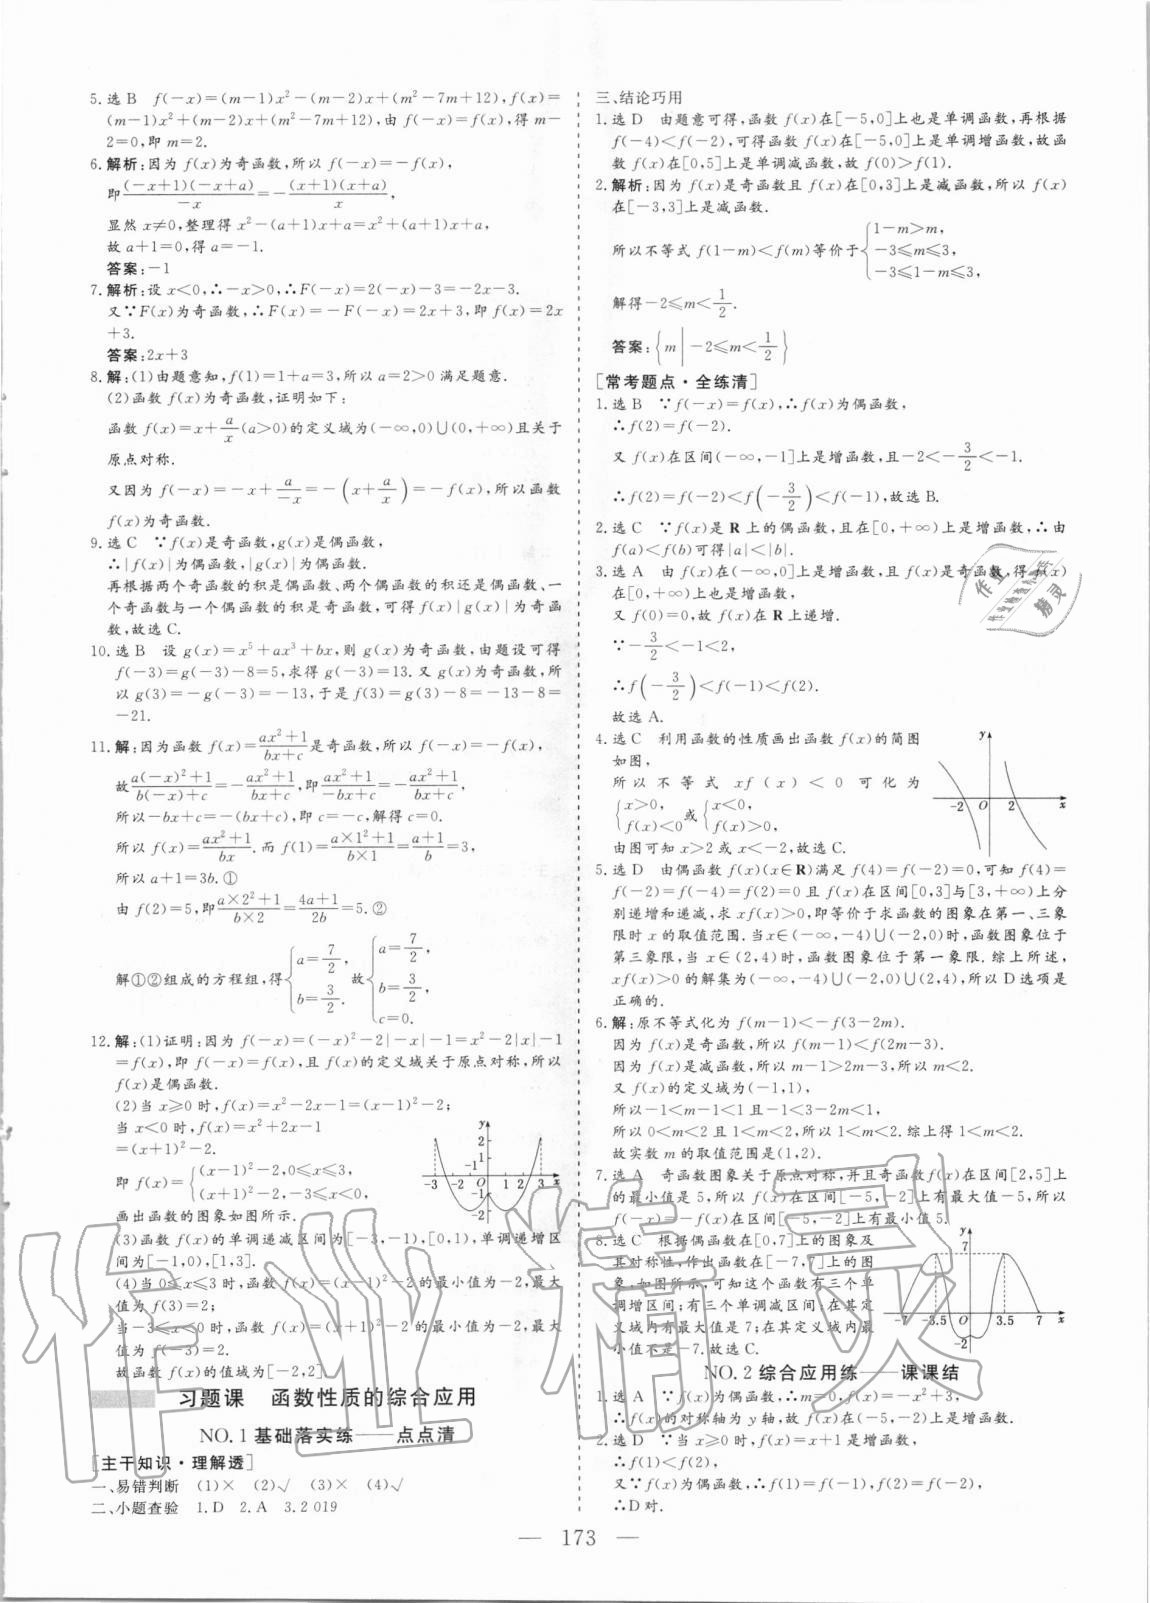 5.选B f(-x)=(m-1)x²-(m-2)x+(m²-7m+12),f(x)=
(m-1)x²+(m-2)x+(m²-7m+12),由 f(-x)=f(x),得 m-
2=0,即 m=2.
6.解析:因为 f(x)为奇函数,所以 f(-x)=-f(x),
即(-x+1)(-x+a)/-x=-(x+1)(x+a)/x,
显然 x≠0,整理得 x²-(a+1)x+a=x²+(a+1)x+a,
故 a+1=0,得 a=-1.
答案:-1
7.解析:设 x<0,∴-x>0,∴F(-x)=2(-x)-3=-2x-3.
又∵F(x)为奇函数,∴F(x)=-F(-x)=2x+3,即 f(x)=2x
+3.
答案:2x+3
8.解:(1)由题意知,f(1)=1+a=3,所以 a=2>0 满足题意.
(2)函数 f(x)为奇函数,证明如下:
函数 f(x)=x+a/x(a>0)的定义域为(-∞,0)∪(0,+∞)且关于
原点对称.
又因为 f(-x)=-x+a/-x=-(x+a/x)=-f(x),所以函数
f(x)为奇函数.
9.选C ∵f(x)是奇函数,g(x)是偶函数,
∴|f(x)|为偶函数,|g(x)|为偶函数.
再根据两个奇函数的积是偶函数、两个偶函数的积还是偶函数、一
个奇函数与一个偶函数的积是奇函数,可得 f(x)|g(x)|为奇函
数,故选 C.
10.选B 设 g(x)=x⁵+ax³+bx,则 g(x)为奇函数,由题设可得
f(-3)=g(-3)-8=5,求得 g(-3)=13.又 g(x)为奇函数,所
以 g(3)=-g(-3)=-13,于是 f(3)=g(3)-8=-13-8=
-21.
11.解:因为函数 f(x)=ax²+1/bx+c是奇函数,所以 f(-x)=-f(x),
故a(-x)²+1/b(-x)+c=-ax²+1/bx+c,即ax²+1/-bx+c=-ax²+1/bx+c,
所以-bx+c=-(bx+c),即 c=-c,解得 c=0.
所以 f(x)=ax²+1/bx.而 f(1)=a×1²+1/b×1=a+1/b=3,
所以 a+1=3b.①
由 f(2)=5,即a×2²+1/b×2=4a+1/2b=5.②
解①②组成的方程组,得{a=7/2, b=3/2. 故{a=7/2, b=3/2, c=0.
12.解:(1)证明:因为 f(-x)=(-x)²-2|-x|-1=x²-2|x|-1
=f(x),即 f(-x)=f(x),且 f(x)的定义域关于原点对称,所以
f(x)是偶函数.
(2)当 x≥0 时,f(x)=x²-2x-1=(x-1)²-2;
当 x<0 时,f(x)=x²+2x-1
=(x+1)²-2,
即 f(x)={(x-1)²-2,0≤x≤3, (x+1)²-2,-3≤x<0.
画出函数的图象如图所示.
y 2 1 -1 -2 -3 O 1 2 3 x
(3)函数 f(x)的单调递减区间为[-3,-1),[0,1),单调递增区
间为[-1,0),[1,3].
(4)当 0≤x≤3 时,函数 f(x)=(x-1)²-2 的最小值为-2,最大
值为 f(3)=2;
当-3≤x<0 时,函数 f(x)=(x+1)²-2 的最小值为-2,最大
值为 f(-3)=2.
故函数 f(x)的值域为[-2,2].
习题课 函数性质的综合应用
NO.1 基础落实练——点点清
[主干知识·理解透]
一、易错判断 (1)× (2)√ (3)× (4)√
二、小题查验 1.D 2.A 3.2 019
三、结论巧用
1.选D 由题意可得,函数 f(x)在[-5,0]上也是单调函数,再根据
f(-4)<f(-2),可得函数 f(x)在[-5,0]上是单调增函数,故函
数 f(x)在[0,5]上是单调减函数,故 f(0)>f(1).
2.解析:因为 f(x)是奇函数且 f(x)在[0,3]上是减函数,所以 f(x)
在[-3,3]上是减函数.
所以不等式 f(1-m)<f(m)等价于{1-m>m, -3≤m≤3, -3≤1-m≤3,
解得-2≤m<1/2.
答案:{m|-2≤m<1/2}
[常考题点·全练清]
1.选B ∵f(-x)=f(x),∴f(x)为偶函数,
∴f(2)=f(-2).
又 f(x)在区间(-∞,-1]上是增函数,且-2<-3/2<-1.
∴f(2)=f(-2)<f(-3/2)<f(-1),故选 B.
2.选C ∵f(x)是 R 上的偶函数,且在[0,+∞)上是增函数,∴由
f(a)<f(b)可得|a|<|b|.
3.选A 由 f(x)在(-∞,0]上是增函数,且 f(x)是奇函数,得 f(x)
在[0,+∞)上也是增函数,
又 f(0)=0,故 f(x)在 R 上递增.
∵-3/2<-1<2,
∴f(-3/2)<f(-1)<f(2).
故选 A.
4.选C 利用函数的性质画出函数 f(x)的简图
如图,
所以不等式 xf(x)<0 可化为
{x>0, f(x)<0 或{x<0, f(x)>0,
由图可知 x>2 或 x<-2,故选 C.
y -2 O 2 x
5.选D 由偶函数 f(x)(x∈R)满足 f(4)=f(-2)=0,可知 f(4)=
f(-2)=f(-4)=f(2)=0 且 f(x)在区间[0,3]与[3,+∞)上分
别递增和递减,求 xf(x)>0,即等价于求函数的图象在第一、三象
限时 x 的取值范围.当x∈(-∞,-4)∪(-2,0)时,函数图象位于
第三象限,当 x∈(2,4)时,函数图象位于第一象限.综上所述,
xf(x)>0 的解集为(-∞,-4)∪(-2,0)∪(2,4),所以 D 选项是
正确的.
6.解:原不等式化为 f(m-1)<-f(3-2m).
因为 f(x)是奇函数,所以 f(m-1)<f(2m-3).
因为 f(x)是减函数,所以 m-1>2m-3,所以 m<2.
又 f(x)的定义域为(-1,1),
所以-1<m-1<1 且-1<3-2m<1,
所以 0<m<2 且 1<m<2,所以 1<m<2.综上得 1<m<2.
故实数 m 的取值范围是(1,2).
7.选A 奇函数图象关于原点对称,并且奇函数 f(x)在区间[2,5]上
的最小值是 5,所以 f(x)在区间[-5,-2]上有最大值-5,所以
f(x)在区间[-5,-2]上有最小值 5.
8.选C 根据偶函数在[0,7]上的图象及
其对称性,作出函数在[-7,7]上的图
象,如图所示,可知这个函数有三个单
调增区间;有三个单调减区间;在其定
义域内有最大值是 7;在其定义域内最
小值不是-7.故选 C.
y 7 -7 -3.5 O 3.5 7 x -2
NO.2 综合应用练——课课结
1.选A ∵f(x)为偶函数,∴m=0,∴f(x)=-x²+3,
∴f(x)的对称轴为 y 轴,故 f(x)在(-5,-2)上是增函数.
2.选D ∵当 x>0 时,f(x)=x+1是增函数,
∴f(1)<f(2).
又∵f(x)为偶函数,∴f(1)=f(-1),f(2)=f(-2),
∴D 对.
— 173 —
作业精灵